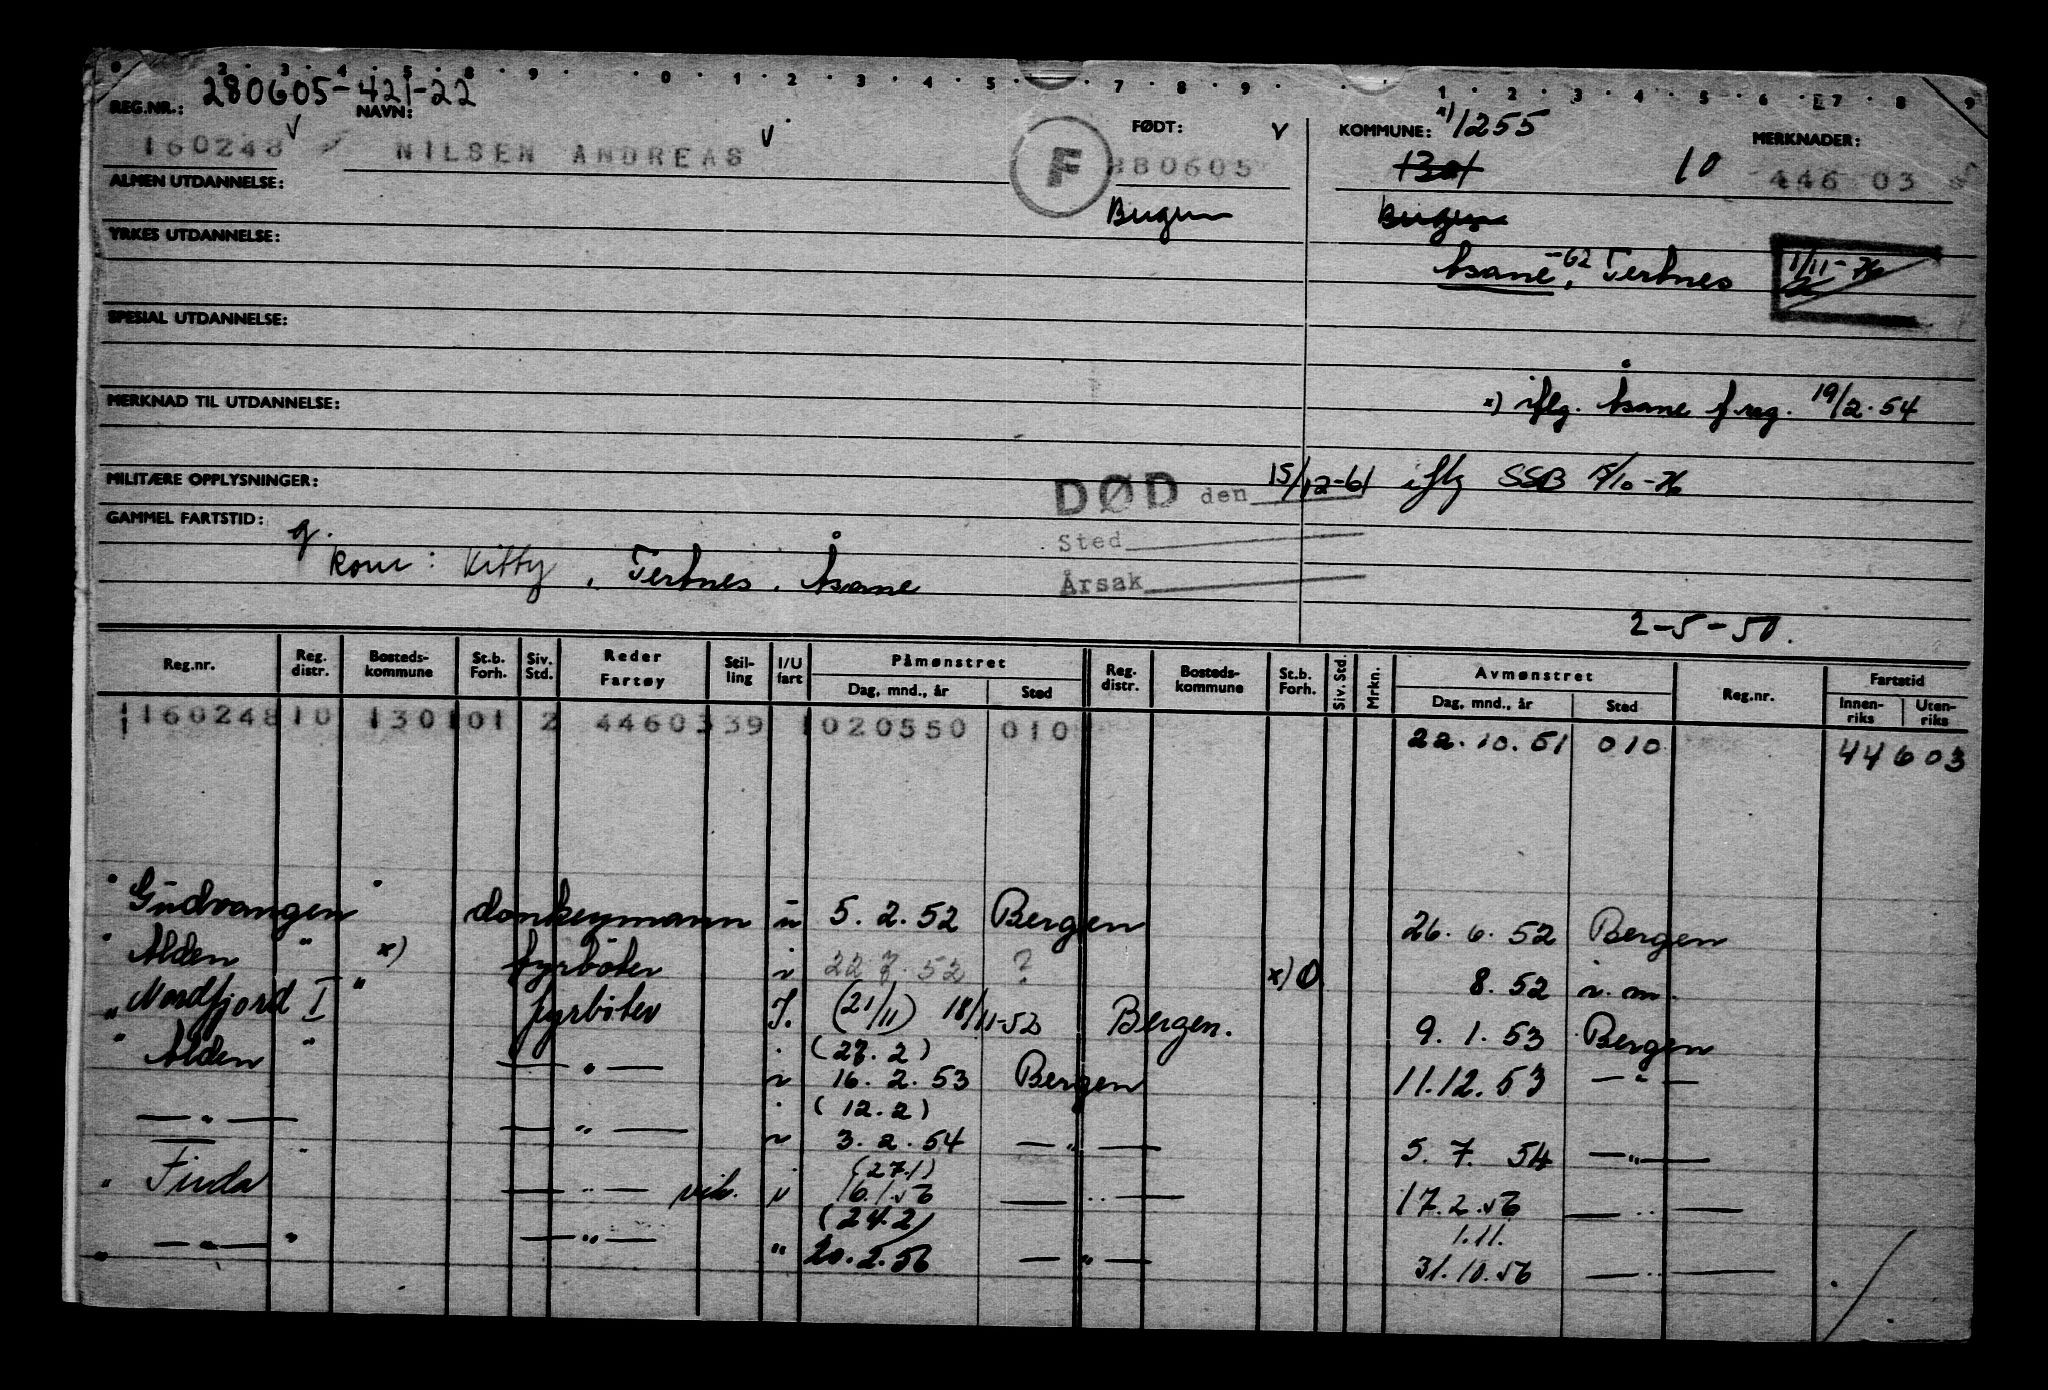 280605-421-22
REG.NR.: NAVN: FØDT: KOMMUNE: x) 1255 MERKNADER:
160248 NILSEN ANDREAS F 280605 1301 10 446 03
ALMEN UTDANNELSE: Bergen Bergen
YRKES UTDANNELSE: Åsane, -62 Tertnes 1/11-76
SPESIAL UTDANNELSE:
MERKNAD TIL UTDANNELSE: x) iflg. Åsane f.reg. 19/2.54
MILITÆRE OPPLYSNINGER: DØD den 15/12-61 iflg SSB /10-76
GAMMEL FARTSTID: g. Sted
kone: Kitty, Tertnes, Åsane Årsak
2-5-50.
Reg.nr. Reg. distr. Bosteds-kommune St.b. Forh. Siv. Std. Reder Fartøy Stil-ling I/U fart Påmønstret Dag, mnd., år Sted Reg. distr. Bosteds-kommune St.b. Forh. Siv. Std. Mrkn. Avmønstret Dag, mnd., år Sted Reg.nr. Fartstid Innen-riks Uten-riks
160248 10 1301 01 2 44603 39 1 020550 010 22.10.51 010 44603
Gudvangen donkeymann u 5.2.52 Bergen 26.6.52 Bergen
Alden " x) fyrbøter i 22.7.52 ? x) 0 8.52 i.m.
Nordfjord I " fyrbøter I. (21/11) 18/11-52 Bergen. 9.1.53 Bergen
Alden " — " — i (27.2) 16.2.53 Bergen 11.12.53 — " —
— " — — " — i (12.2) 3.2.54 — " — 5.7.54 — " —
Finda — " — vik. i (27.1) 16.1.56 — " — 17.2.56 — " —
— " — " — " — " (24.2) 20.2.56 — " — 1.11. 31.10.56 — " —